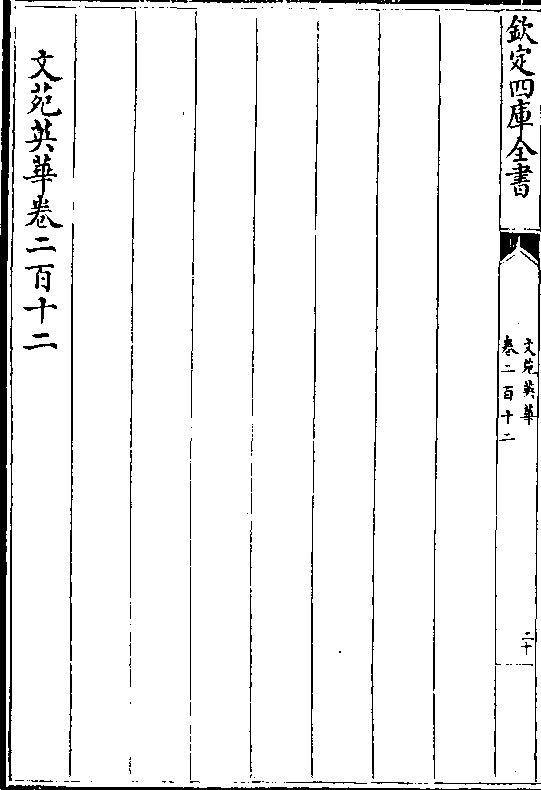 欽定四庫全書
文苑英華
卷二百十二
二十
文苑英華卷二百十二